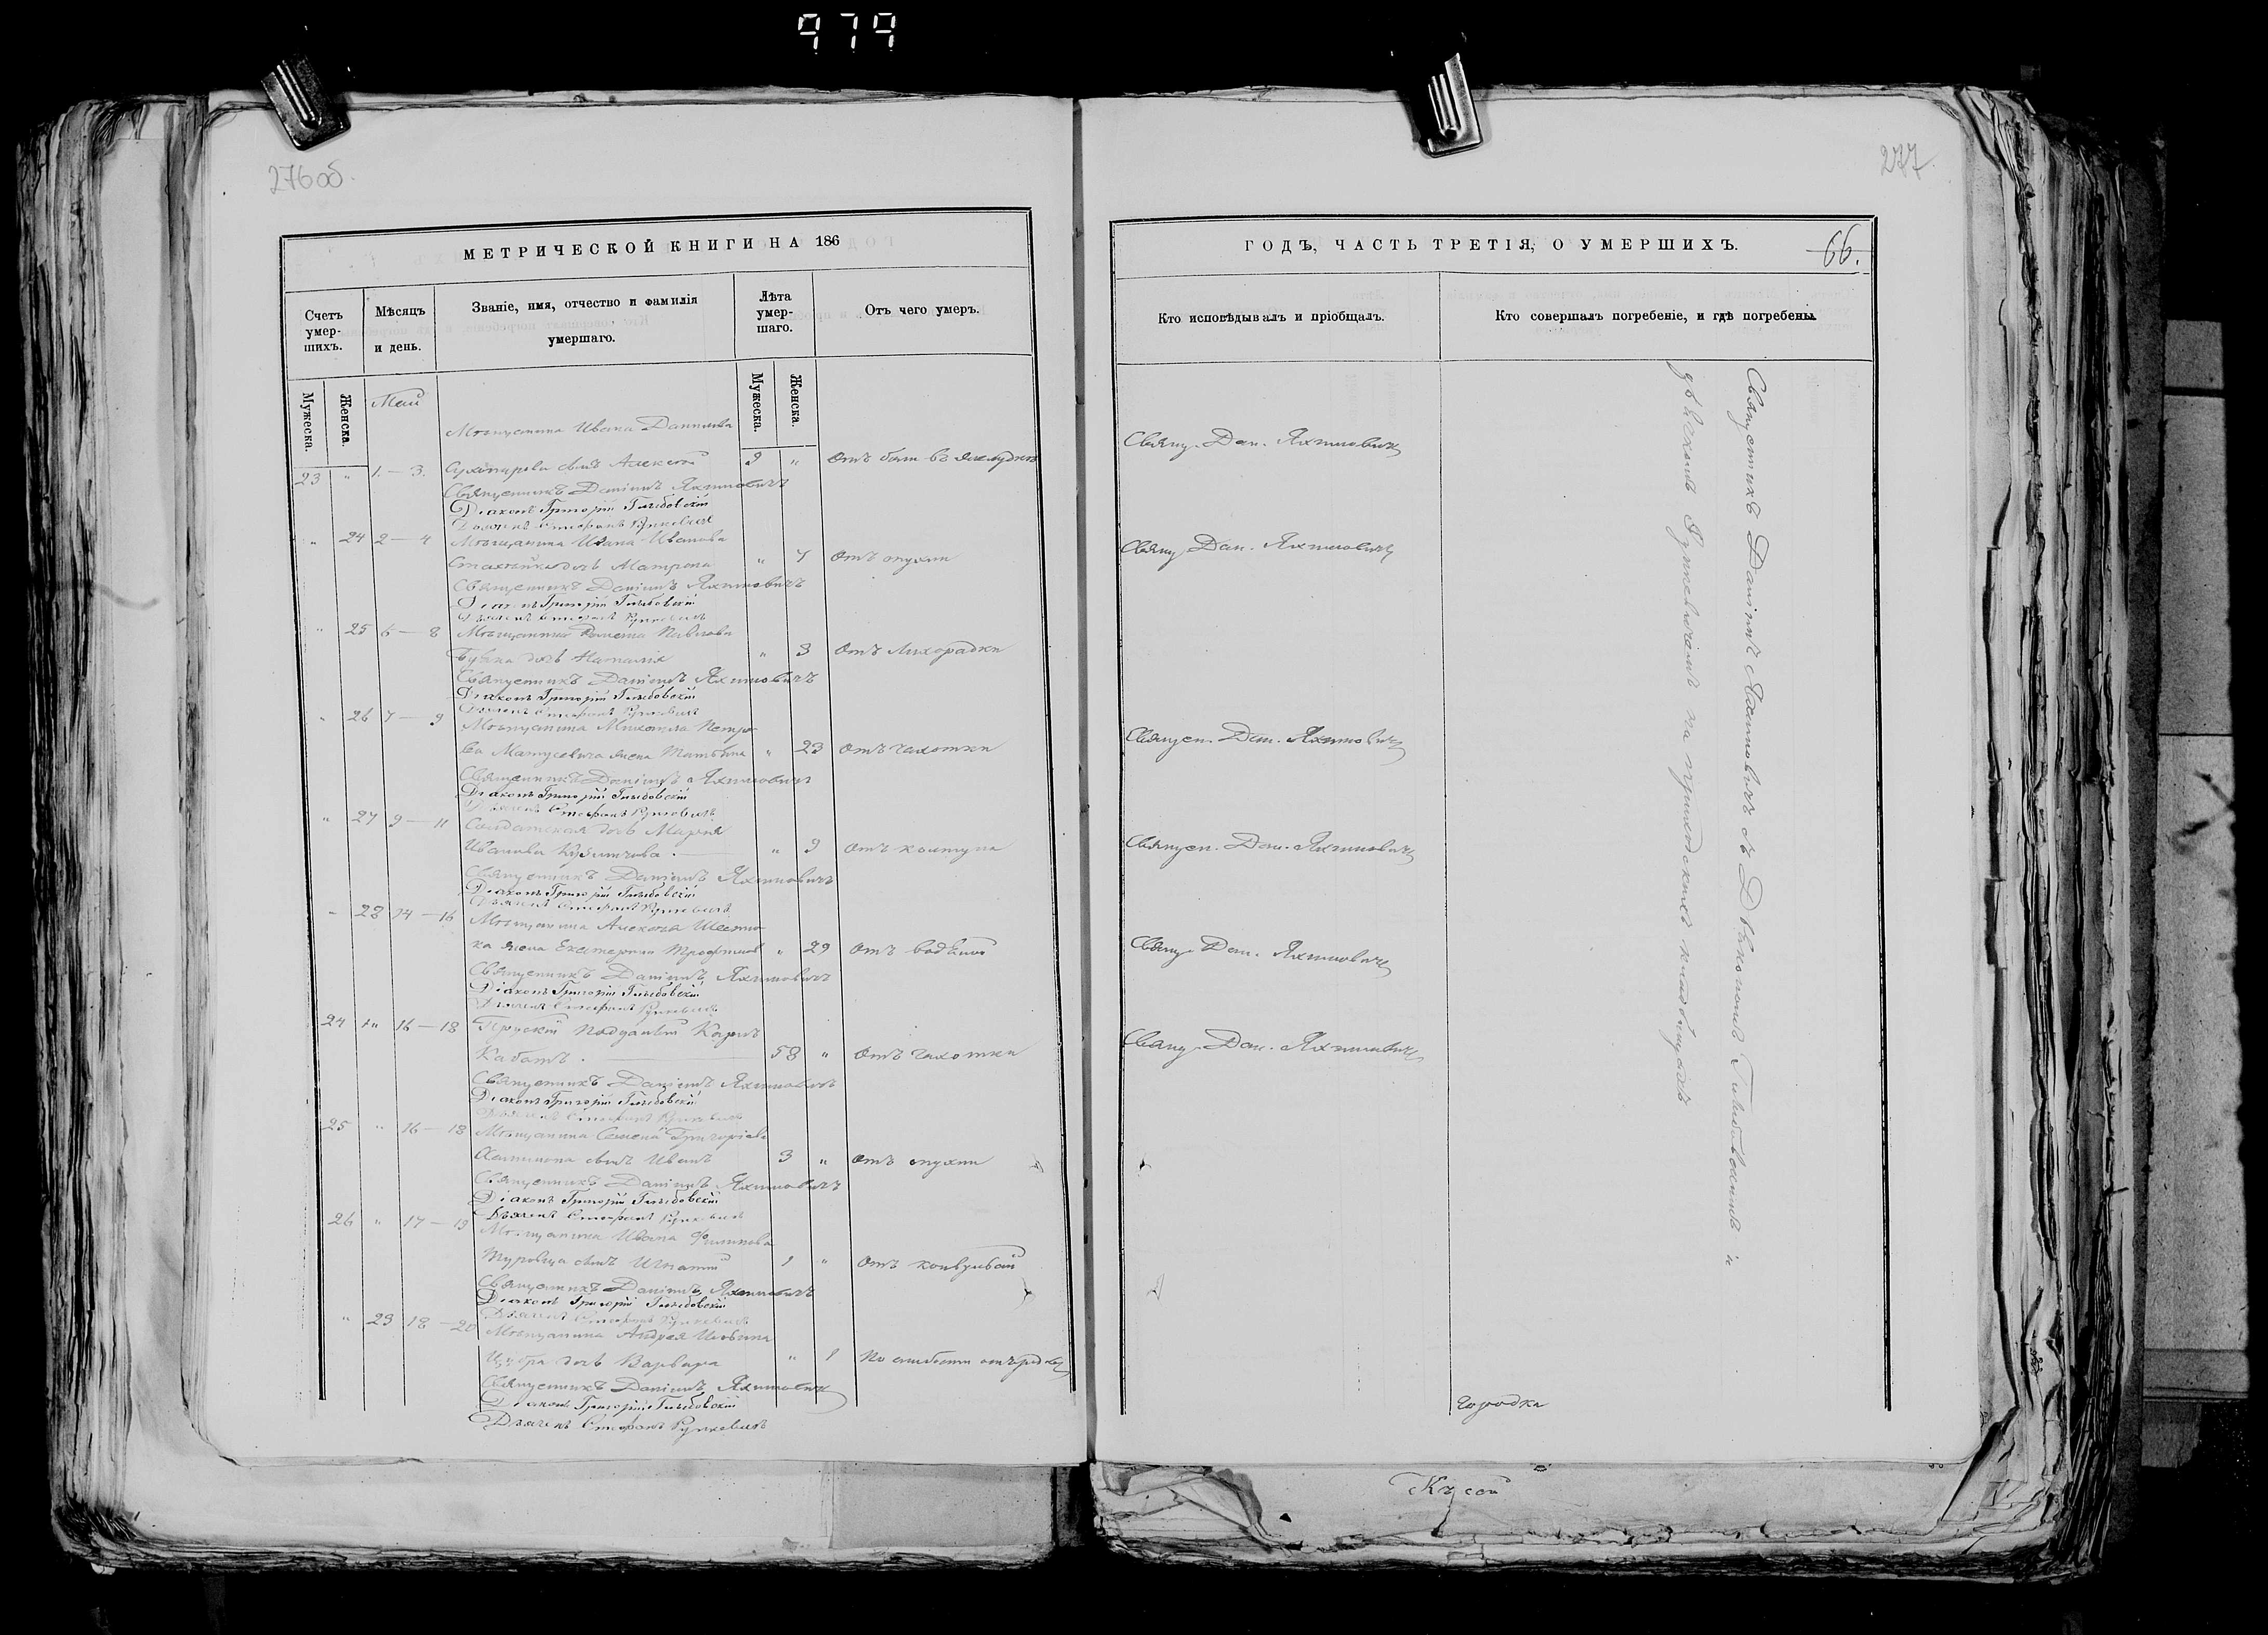 979
276 об.
МЕТРИЧЕСКОЙ КНИГИ НА 186
Счетъ умер-шихъ.
Мѣсяцъ и день.
Званіе, имя, отчество и фамилія умершаго.
Лѣта умер-шаго.
Отъ чего умеръ.
Мужеска.
Женска.
Май
Мужеска.
Женска.
Мѣщанина Ивана Данилова
23 " 1 — 3. сынъ Алексѣй 9 " Отъ боли въ желудкѣ
Священникъ Даніилъ Яхимовичъ
Діаконъ Григорій Голыбовскій
Дьячекъ Стефанъ Рункевичъ
" 24 2 — 4 Мѣщанина Ивана Иванова
дочь Матрона " 7 Отъ опухли
Священникъ Даніилъ Яхимовичъ
Діаконъ Григорій Голыбовскій
Дьячекъ Стефанъ Рункевичъ
" 25 6 — 8 Мѣщанина Павлова
дочь Наталія " 3 Отъ лихорадки
Священникъ Даніилъ Яхимовичъ
Діаконъ Григорій Голыбовскій
Дьячекъ Стефанъ Рункевичъ
" 26 7 — 9 Мѣщанина Михаила Петро
ва Матусевича жена Татьяна " 23 Отъ чахотки
Священникъ Даніилъ Яхимовичъ
Діаконъ Григорій Голыбовскій
Дьячекъ Стефанъ Рункевичъ
" 27 9 — 11 Солдатская дочь Марія
Иванова " 9 Отъ колтуна
Священникъ Даніилъ Яхимовичъ
Діаконъ Григорій Голыбовскій
Дьячекъ Стефанъ Рункевичъ
" 28 14 — 16 Мѣщанина Алексѣя
жена Екатерина " 29 Отъ водяной
Священникъ Даніилъ Яхимовичъ
Діаконъ Григорій Голыбовскій
Дьячекъ Стефанъ Рункевичъ
24 " 16 — 18 Прускій подданый Карлъ
Кабатъ. 58 " Отъ чахотки
Священникъ Даніилъ Яхимовичъ
Діаконъ Григорій Голыбовскій
Дьячекъ Стефанъ Рункевичъ
25 " 16 — 18 Мѣщанина Семена Григоріева
сынъ Иванъ 3 " Отъ опухли
Священникъ Даніилъ Яхимовичъ
Діаконъ Григорій Голыбовскій
Дьячекъ Стефанъ Рункевичъ
26 " 17 — 19 Мѣщанина Ивана Филипова
сынъ Игнатій 1 " Отъ конвульсій
Священникъ Даніилъ Яхимовичъ
Діаконъ Григорій Голыбовскій
Дьячекъ Стефанъ Рункевичъ
" 29 18 — 20 Мѣщанина Андрея
дочь Варвара " 1 По слабости
Священникъ Даніилъ Яхимовичъ
Діаконъ Григорій Голыбовскій
Дьячекъ Стефанъ Рункевичъ
277.
ГОДЪ, ЧАСТЬ ТРЕТІЯ, О УМЕРШИХЪ.
66.
Кто исповѣдывалъ и пріобщалъ.
Кто совершалъ погребеніе, и гдѣ погребены.
Свящ. Дан. Яхимовичъ
Свящ. Дан. Яхимовичъ
Священ. Дан. Яхимовичъ
Священ. Дан. Яхимовичъ
Свящ. Дан. Яхимовичъ
Свящ. Дан. Яхимовичъ
Священникъ Даніилъ Яхимовичъ съ Діякономъ Голыбовскимъ и
дьячкомъ Рункевичемъ на приходскихъ кладбищахъ
городка